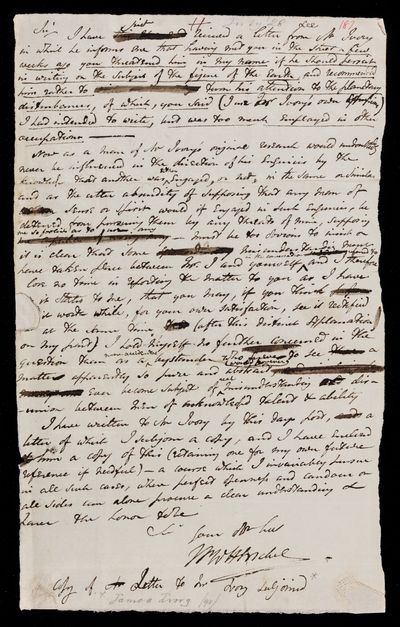 Sir, I have just received a letter from Mr Ivory
in which he informs me that having met you in the Street a few
weeks ago you threatened him in my name if he should persist
in writing on the Subject of the figure of the Earth and recommended
him rather to turn his attention to the planetary
disturbances, of which, you said (I use Mr Ivory's own
I had intended to write, and was too much employed in other
occupations
Now as a man of Mr Ivory's original research would undoubtedly
never be influenced in the direction of his Enquiries by the
knowledge that another was engaged, or not, in the same or similar
and as the utter absurdity of supposing that any man of
Sense or Spirit would if engaged in such Enquiries, be
deterred from pursuing them by any threats of mine supposing
me so foolish as to use any, must be too obvious to insist on
it is clear that some misunderstanding must
have taken place between Mr. I and yourself and I therefore
lose no time in reporting the matter to you as I have
it stated to me, that you may, if you think
it worth while, for your own satisfaction, see it rectified
at the same time, (after this distinct explanation
on my part) I hold myself no further concerned in the
question than as a bystander who grieves to see a
matter apparently so pure and abstract
ever become subject of misunderstanding or dis-
-union between men of acknowledged talent & ability
I have written to Mr Ivory by this days post, a
letter of which I subjoin a copy, and I have enclosed
him a copy of this (retaining one for my own future
reference if needful) - a course which I invariably pursue
in all such cases, where perfect openness and candour on
all sides can alone procure a clear understanding &
have the honor to be
Sir
Your Obt Sert
JFW Herschel
Copy of Letter to Mr Ivory subjoined
James Ivory